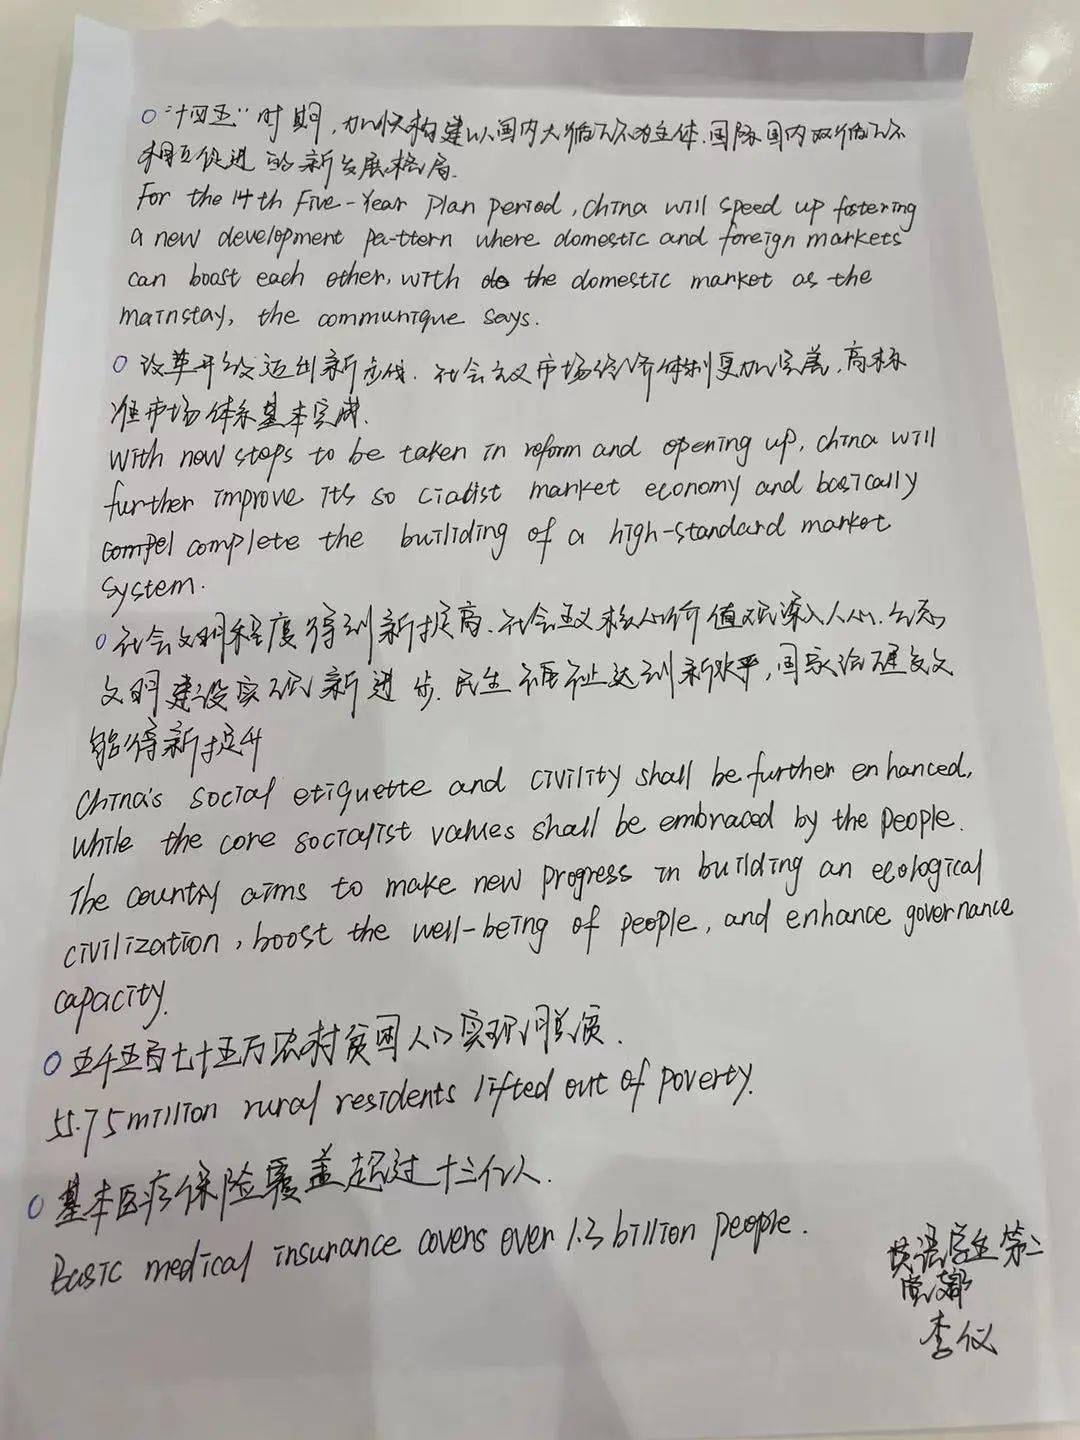 “十四五”时期，加快构建以国内大循环为主体、国际国内双循环
相互促进的新发展格局.
For the 14th Five-Year Plan period, China will speed up fostering
a new development pattern where domestic and foreign markets
can boost each other, with the domestic market as the
mainstay, the communique says.
改革开放迈出新步伐. 社会主义市场经济体制更加完善, 高标
准市场体系基本完成.
With new steps to be taken in reform and opening up, China will
further improve its socialist market economy and basically
compel complete the builiding of a high-standard market
system.
社会文明程度得到新提高. 社会主义核心价值观深入人心. 生态
文明建设实现新进步. 民生福祉达到新水平, 国家治理效
能得新提升
China's social etiquette and civility shall be further enhanced,
while the core socialist values shall be embraced by the people.
The country aims to make new progress in building an ecological
civilization, boost the well-being of people, and enhance governance
capacity.
五千五百七十五万农村贫困人口实现脱贫.
55.75 million rural residents lifted out of poverty.
基本医疗保险覆盖超过十三亿人.
Basic medical insurance covers over 1.3 billion people.
英语学生第二
党支部
李仪